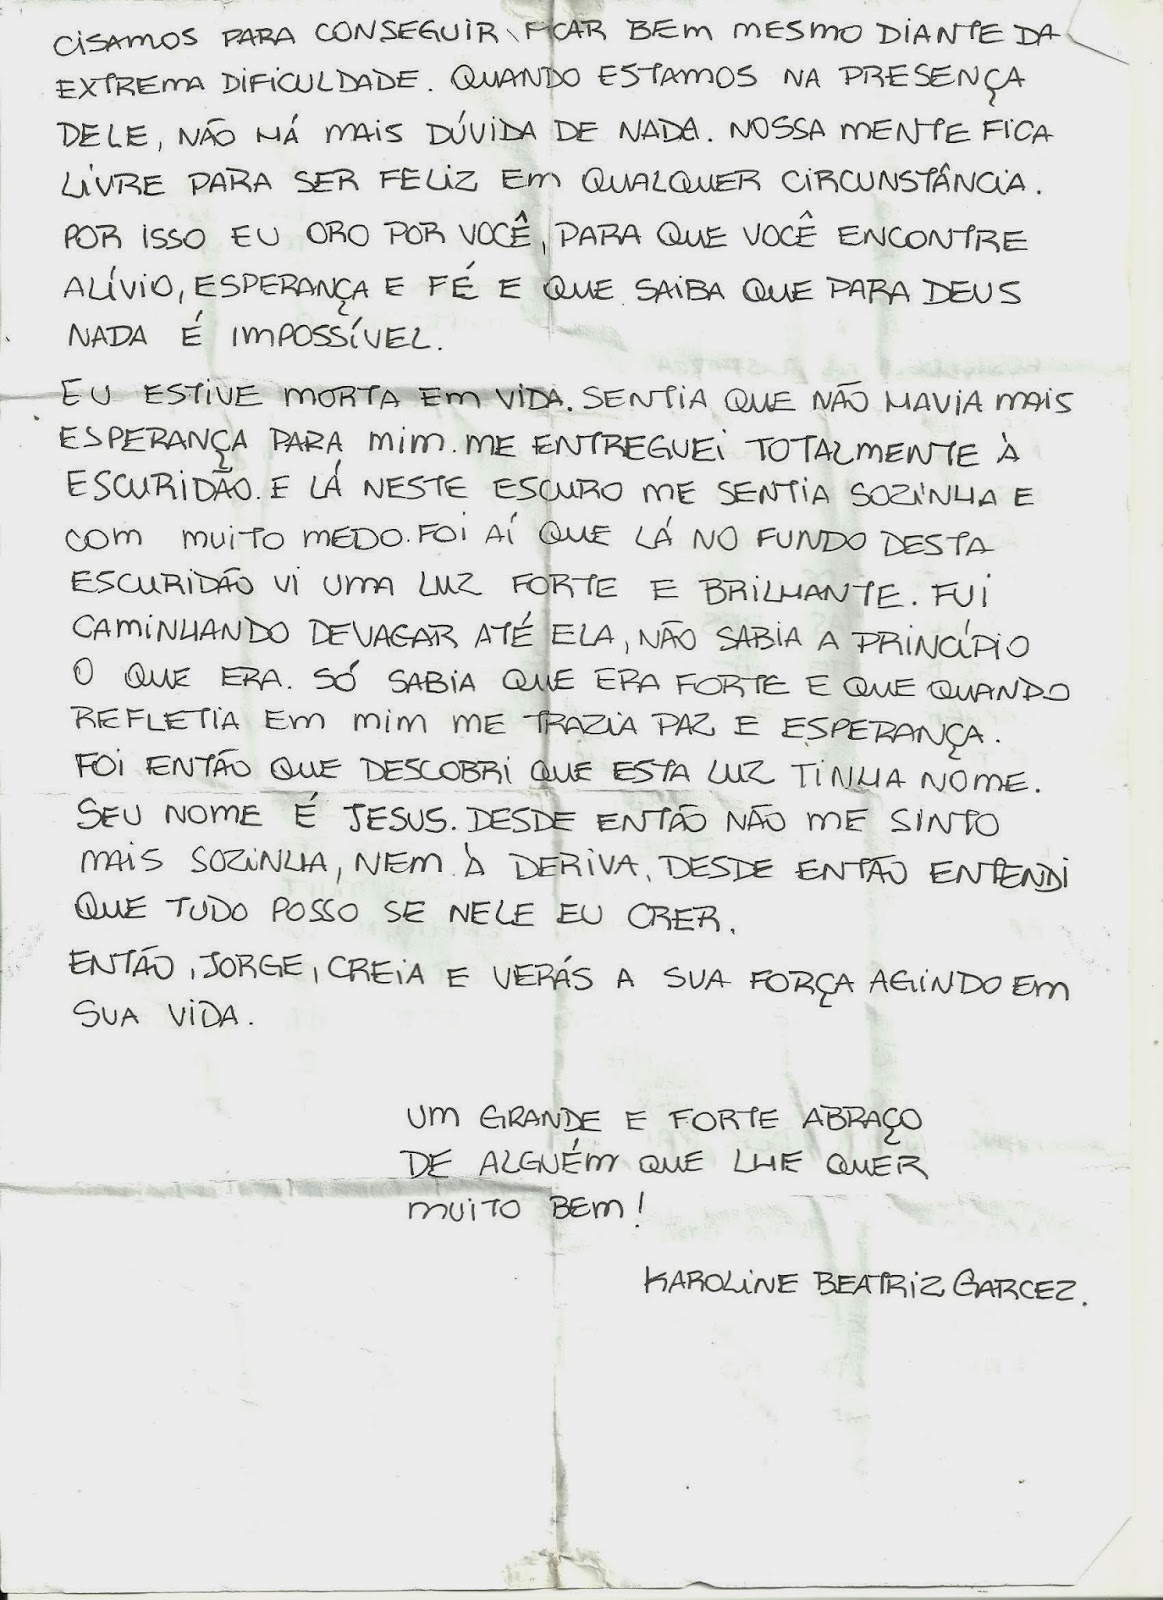 CISAMOS PARA CONSEGUIR FICAR BEM MESMO DIANTE DA
EXTREMA DIFICULDADE. QUANDO ESTAMOS NA PRESENÇA
DELE, NÃO HÁ MAIS DÚVIDA DE NADA. NOSSA MENTE FICA
LIVRE PARA SER FELIZ EM QUALQUER CIRCUNSTÂNCIA.
POR ISSO EU ORO POR VOCÊ, PARA QUE VOCÊ ENCONTRE
ALÍVIO, ESPERANÇA E FÉ E QUE SAIBA QUE PARA DEUS
NADA É IMPOSSÍVEL.
EU ESTIVE MORTA EM VIDA. SENTIA QUE NÃO HAVIA MAIS
ESPERANÇA PARA MIM. ME ENTREGUEI TOTALMENTE À
ESCURIDÃO. E LÁ NESTE ESCURO ME SENTIA SOZINHA E
COM MUITO MEDO. FOI AÍ QUE LÁ NO FUNDO DESTA
ESCURIDÃO VI UMA LUZ FORTE E BRILHANTE. FUI
CAMINHANDO DEVAGAR ATÉ ELA, NÃO SABIA A PRINCÍPIO
O QUE ERA. SÓ SABIA QUE ERA FORTE E QUE QUANDO
REFLETIA EM MIM ME TRAZIA PAZ E ESPERANÇA.
FOI ENTÃO QUE DESCOBRI QUE ESTA LUZ TINHA NOME.
SEU NOME É JESUS. DESDE ENTÃO NÃO ME SINTO
MAIS SOZINHA, NEM À DERIVA, DESDE ENTÃO ENTENDI
QUE TUDO POSSO SE NELE EU CRER.
ENTÃO, JORGE, CREIA E VERÁS A SUA FORÇA AGINDO EM
SUA VIDA.
UM GRANDE E FORTE ABRAÇO
DE ALGUÉM QUE LHE QUER
MUITO BEM!
KAROLINE BEATRIZ GARCEZ.